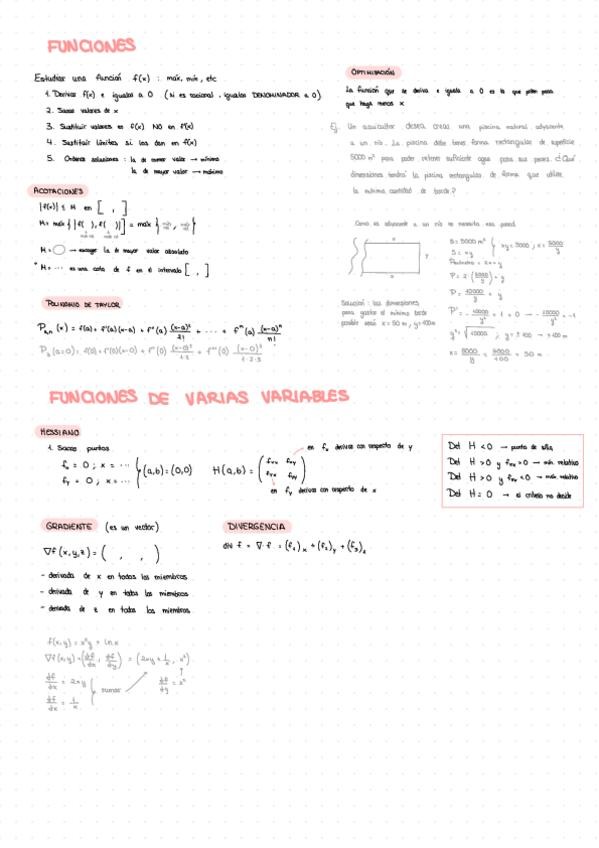 FUNCIONES
Estudiar una función f(x) : máx, mín, etc
1. Derivar f(x) e igualas a 0 (si es racional, igualas DENOMINADOR a 0)
2. Sacas valores de x
3. Sustituir valores en f(x) NO en f'(x)
4. Sustituir límites si los dan en f(x)
5. Ordenar soluciones : la de menor valor → mínimo
la de mayor valor → máximo
ACOTACIONES
|f(x)| ≤ M en [ , ]
M = máx { |f( ), f( )| } = máx { , }
M = → escoger la de mayor valor absoluto
* M = ... es una cota de f en el intervalo [ , ]
POLINOMIO DE TAYLOR
Pₐ,ₙ (x) = f(a) + f'(a)(x-a) + f''(a) (x-a)²/2! + ... + fⁿ(a) (x-a)ⁿ/n!
(a=0) = f(0) + f'(0)(x-0) + f''(0) (x-0)²/1·2 + f'''(0) (x-0)³/1·2·3
OPTIMIZACIÓN
La función que se deriva e iguala a 0 es la que piden para
que haya menos x
Ej. Un acuicultor desea crear una piscina natural adyacente
a un río. La piscina debe tener forma rectangular de superficie
5000 m² para poder retener suficiente agua para sus peces. ¿Qué
dimensiones tendrá la piscina rectangular de forma que utilice
la mínima cantidad de borde?
Como es adyacente a un río se necesita esa pared.
x
y
S = 5000 m²
S = x·y
xy = 5000 ; x = 5000/y
P = 2·(5000/y) + y
P = 10000/y + y
P' = - 10000/y² + 1 = 0 → - 10000/y² = -1
y² = √10000 ; y = ±100 → +100 m
x = 5000/y = 5000/100 = 50 m
Solución : las dimensiones
para gastar el mínimo borde
posible serán x = 50 m, y = 100 m
FUNCIONES DE VARIAS VARIABLES
HESSIANO
1. Sacas puntos
fₓ = 0 ; x = ...
fᵧ = 0 ; x = ...
(a,b) = (0,0)
H(a,b) = ( fₓₓ fₓᵧ fᵧₓ fᵧᵧ )
en fₓ derivas con respecto de y
en fᵧ derivas con respecto de x
Det H < 0 → punto de silla
Det H > 0 y fₓₓ > 0 → mín. relativo
Det H > 0 y fₓₓ < 0 → máx. relativo
Det H = 0 → el criterio no decide
GRADIENTE (es un vector)
∇f(x,y,z) = ( , , )
- derivada de x en todos los miembros
- derivada de y en todos los miembros
- derivada de z en todos los miembros
DIVERGENCIA
div f = ∇·f = (f₁)ₓ + (f₂)ᵧ + (f₃)z
f(x,y) = x²y + ln x
∇f(x,y) = (df/dx, df/dy) = (2xy + 1/x, x²)
df/dx = 2xy
df/dx = 1/x
sumar
df/dy = x²